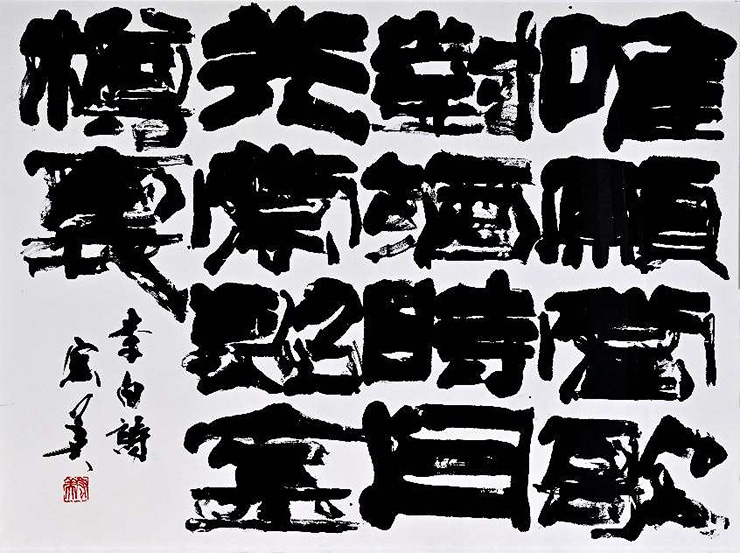 唯願當歌
對酒時月
光常照金
樽裏
李白詩